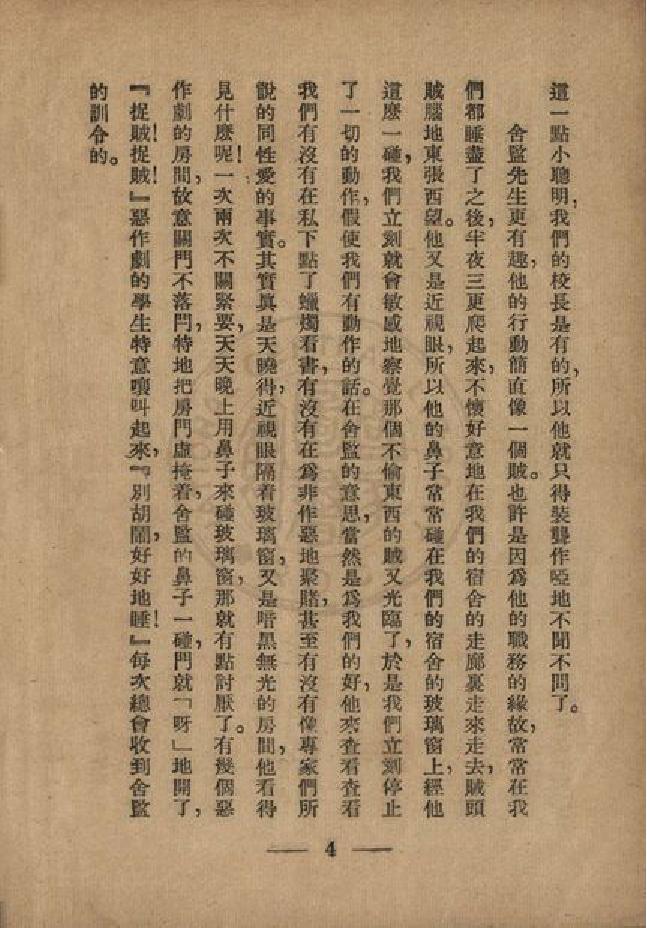 這一點小聰明，我們的校長是有的，所以他就只得裝聾作啞地不聞不問了。
舍監先生更有趣，他的行動簡直像一個賊。也許是因爲他的職務的緣故，常常在我
們都睡盡了之後，半夜三更爬起來，不懷好意地在我們的宿舍的走廊裏走來走去，賊頭
賊腦地東張西望。他又是近視眼，所以他的鼻子常常碰在我們的宿舍的玻璃窗上，經他
這麽一碰，我們立刻就會敏感地察覺那個不偷東西的賊又光臨了，於是我們立刻停止
了一切的動作，假使我們有動作的話。在舍監的意思，當然是爲我們的好，他來查看查看
我們有沒有在私下點了蠟燭看書，有沒有在爲非作惡地聚賭，甚至有沒有像專家們所
說的同性愛的事實。其實眞是天曉得，近視眼隔着玻璃窗，又是暗黑無光的房間，他看得
見什麽呢！一次兩次不關緊要，天天晚上用鼻子來碰玻璃窗，那就有點討厭了。有幾個惡
作劇的房間，故意關門不落閂，特地把房門虛掩着，舍監的鼻子一碰，門就「呀」地開了，
『捉賊！捉賊！』惡作劇的學生特意嚷叫起來，『別胡鬧，好好地睡！』每次總會收到舍監
的訓令的。
4